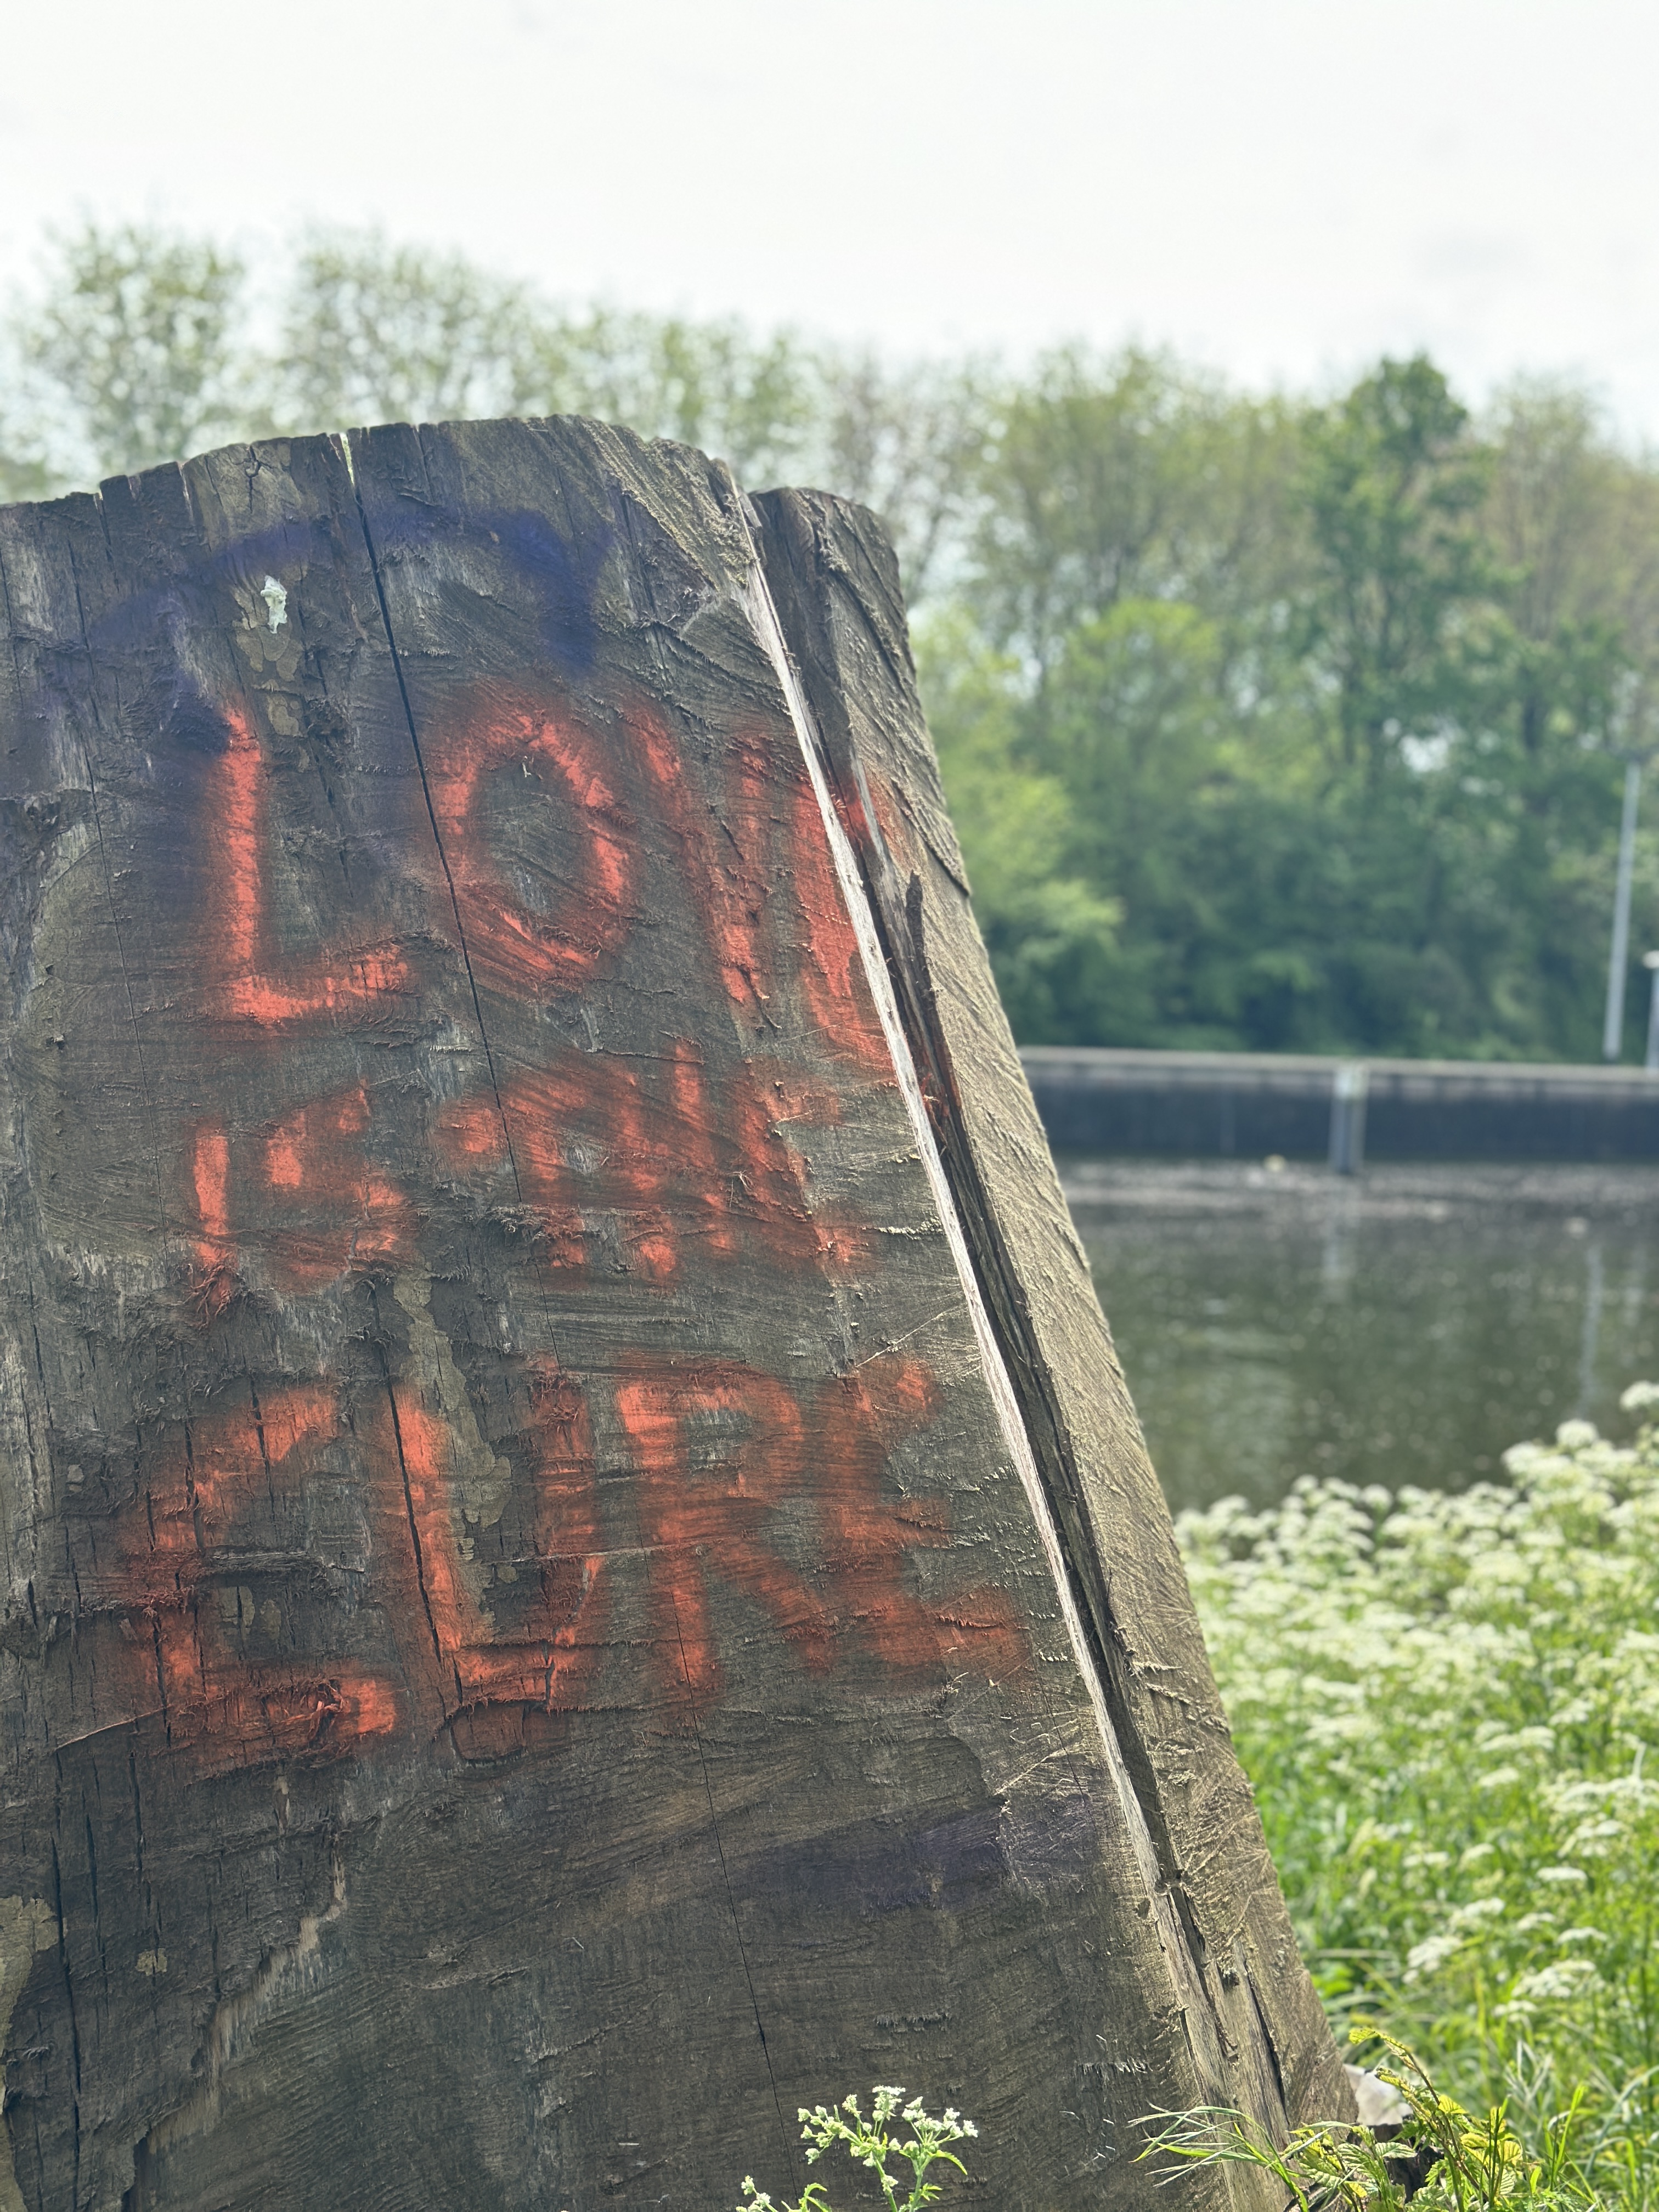 LOVE
IS THE
CURE